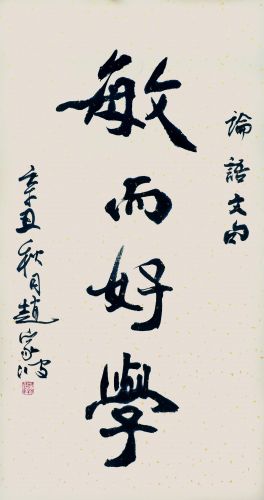 論語文句
敏而好學
辛丑秋月趙家